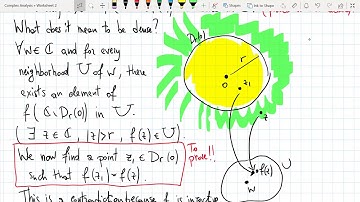 Complex Analysis • Worksheet 2
What does it mean to be dense?
∀ w ∈ ℂ and for every
neighborhood U of w, there
exists an element of
f(ℂ\Dr(0)) in U.
(∃ z ∈ ℂ, |z|>r, f(z) ∈ U)
We now find a point z₁ ∈ Dr(0)
such that f(z₁)=f(z).
To prove!!
This is a contradiction because f is injective
Dr(0)
r
0
z₁
z
f(z)
U
w